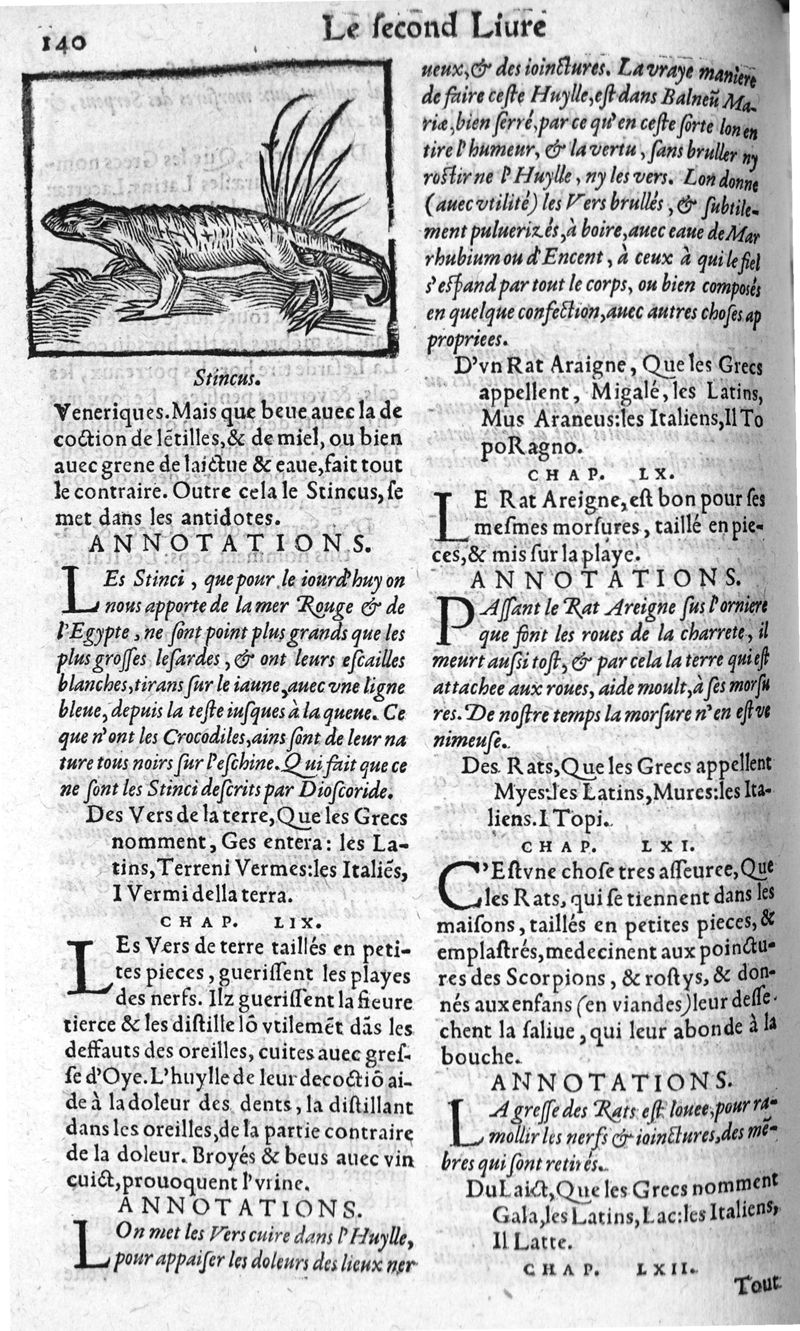 140
Le ſecond Liure
Stincus.
Veneriques. Mais que beue auec la de
coction de lẽtilles, & de miel, ou bien
auec grene de laictue & eaue, fait tout
le contraire. Outre cela le Stincus, ſe
met dans les antidotes.
ANNOTATIONS.
LEs Stinci, que pour le iourd'huy on
nous apporte de la mer Rouge & de
l'Egypte, ne ſont point plus grands que les
plus groſſes leſardes, & ont leurs eſcailles
blanches, tirans ſur le iaune, auec vne ligne
bleue, depuis la teſte iuſques à la queue. Ce
que n'ont les Crocodiles, ains ſont de leur na
ture tous noirs ſur l'eſchine. Qui fait que ce
ne ſont les Stinci deſcrits par Dioſcoride.
Des Vers de la terre, Que les Grecs
nomment, Ges entera: les La-
tins, Terreni Vermes: les Italiẽs,
I Vermi della terra.
CHAP. LIX.
LEs Vers de terre taillés en peti-
tes pieces, gueriſſent les playes
des nerfs. Ilz gueriſſent la fieure
tierce & les diſtille lõ vtilemẽt dãs les
deffauts des oreilles, cuites auec greſ-
ſe d'Oye. L'huylle de leur decoctiõ ai-
de à la doleur des dents, la diſtillant
dans les oreilles, de la partie contraire
de la doleur. Broyés & beus auec vin
cuict, prouoquent l'vrine.
ANNOTATIONS.
LOn met les Vers cuire dans l'Huylle,
pour appaiſer les doleurs des lieux ner
ueux, & des ioinctures. La vraye maniere
de faire ceſte Huylle, eſt dans Balneũ Ma-
riæ, bien ſerré, par ce qu'en ceſte ſorte lon en
tire l'humeur, & la vertu, ſans bruller ny
roſtir ne l'Huylle, ny les vers. Lon donne
(auec vtilité) les Vers brullés, & ſubtile-
ment puluerizés, à boire, auec eaue de Mar
rhubium ou d'Encent, à ceux à qui le fiel
s'eſpand par tout le corps, ou bien composés
en quelque confection, auec autres choſes ap
propriees.
D'vn Rat Araigne, Que les Grecs
appellent, Migalé, les Latins,
Mus Araneus: les Italiens, Il To
po Ragno.
CHAP. LX.
LE Rat Areigne, eſt bon pour ſes
meſmes morſures, taillé en pie-
ces, & mis ſur la playe.
ANNOTATIONS.
PAſſant le Rat Areigne ſus l'orniere
que font les roues de la charrete, il
meurt auſsi toſt, & par cela la terre qui eſt
attachee aux roues, aide moult, à ſes morſu
res. De noſtre temps la morſure n'en eſt ve
nimeuſe.
Des Rats, Que les Grecs appellent
Myes: les Latins, Mures: les Ita-
liens. I Topi.
CHAP. LXI.
C'Eſt vne choſe tres aſſeuree, Que
les Rats, qui ſe tiennent dans les
maiſons, taillés en petites pieces, &
emplaſtrés, medecinent aux poinctu-
res des Scorpions, & roſtys, & don-
nés aux enfans (en viandes) leur deſſe-
chent la ſaliue, qui leur abonde à la
bouche.
ANNOTATIONS.
LA greſſe des Rats eſt louee, pour ra-
mollir les nerfs & ioinctures, des mẽ-
bres qui ſont retirés.
Du Laict, Que les Grecs nomment
Gala, les Latins, Lac: les Italiens,
Il Latte.
CHAP. LXII.
Tout